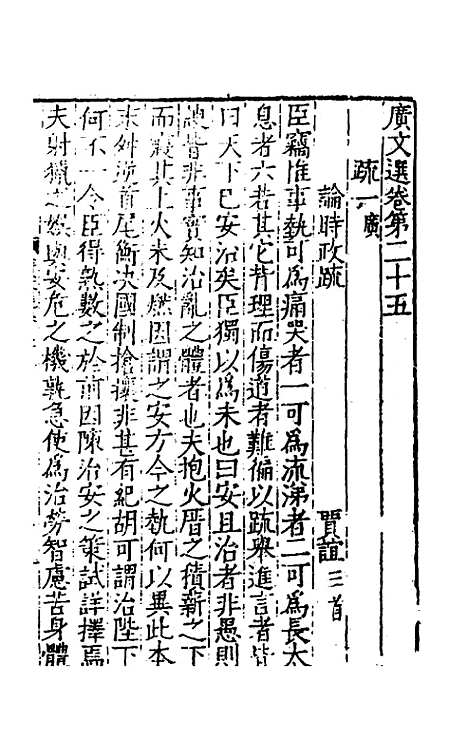 廣文選卷第二十五
疏一廣
論時政疏 賈誼三首
臣竊惟事埶可爲痛哭者一可爲流涕者二可爲長太
息者六若其它背理而傷道者難徧以疏舉進言者皆
曰天下已安治矣臣獨以爲未也曰安且治者非愚則
諛皆非事實知治亂之體者也夫抱火厝之積薪之下
而寢其上火未及燃因謂之安方今之埶何以異此本
末舛逆首尾衡决國制搶攘非甚有紀胡可謂治陛下
何不一令臣得孰數之於前因陳治安之策試詳擇焉
夫射獵之娱與安危之機孰急使爲治勞智慮苦身體